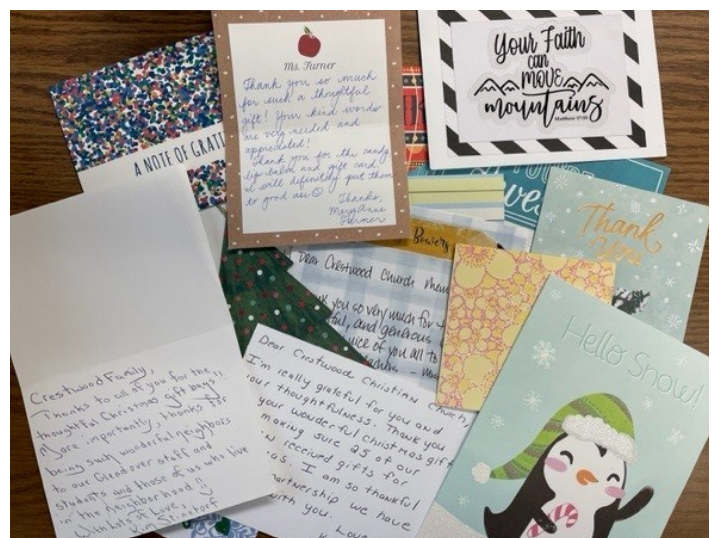 A NOTE OF GRATI
Ms. Turner
Thank you so much
for such a thoughtful
gift! Your kind words
are very needed and
appreciated!
Thank you for the candy,
lip balm and gift card.
I will definitely put them
to good use ☺
Thanks,
MaryAnne
Turner
Your Faith
can
move
mountains
Matthew 17:20
Thank
You
Bowers
Dear Crestwood Church
you so very much for
ful, and generous
nice of you all to
Hello Snow!
Crestwood Family,
Thanks to all of you for the
thoughtful Christmas gift bags!!
More importantly, thanks for
being such wonderful neighbors
to our Glendover staff and
students and those of us who live
in the neighborhood!!
With lots of Love,
Kim
Dear Crestwood Christian Church,
I'm really grateful for you and
your thoughtfulness. Thank you
your wonderful Christmas gift
making sure 25 of our
received gifts for
as. I am so thankful
partnership we have
with you.
Love